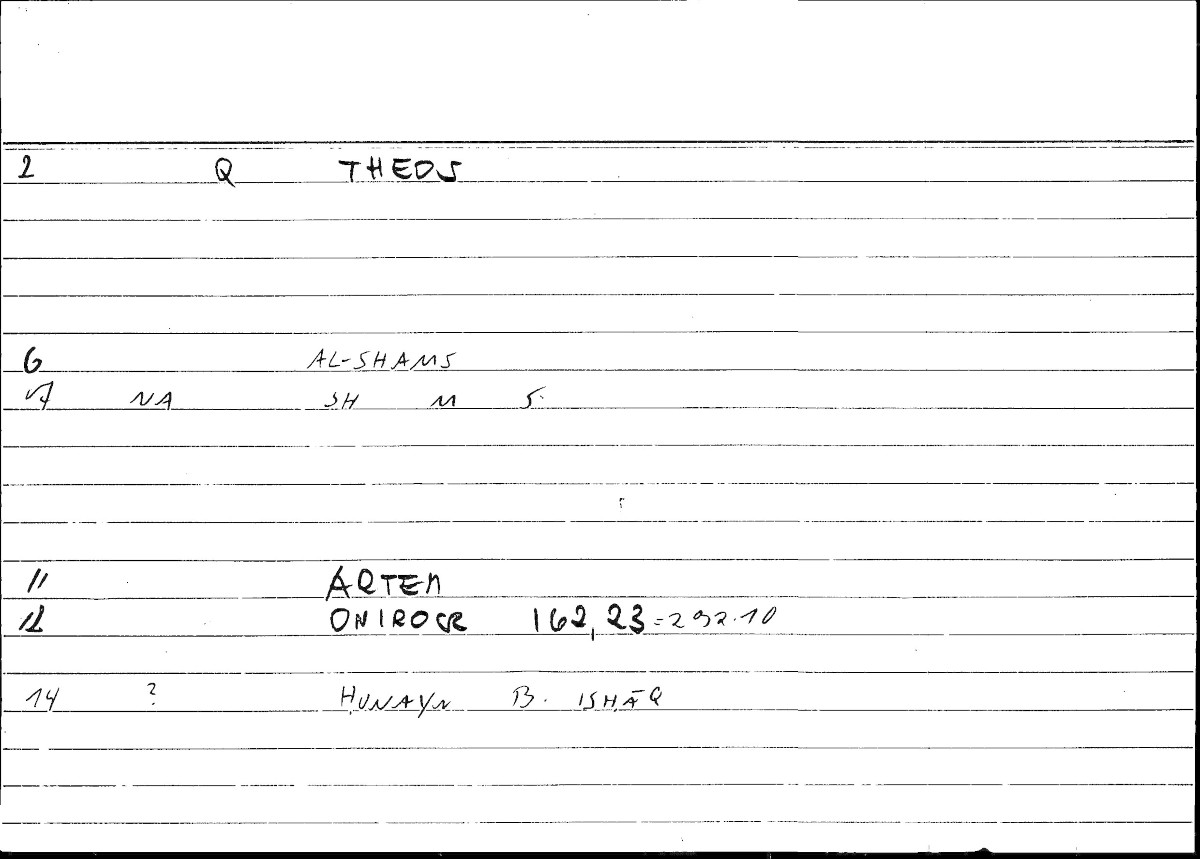 2 Q THEOS
6 AL-SHAMS
7 NA SH M S
11 ARTEM
12 ONIROCR 162,23=292.10
14 ? ḤUNAYN B. ISḤĀQ